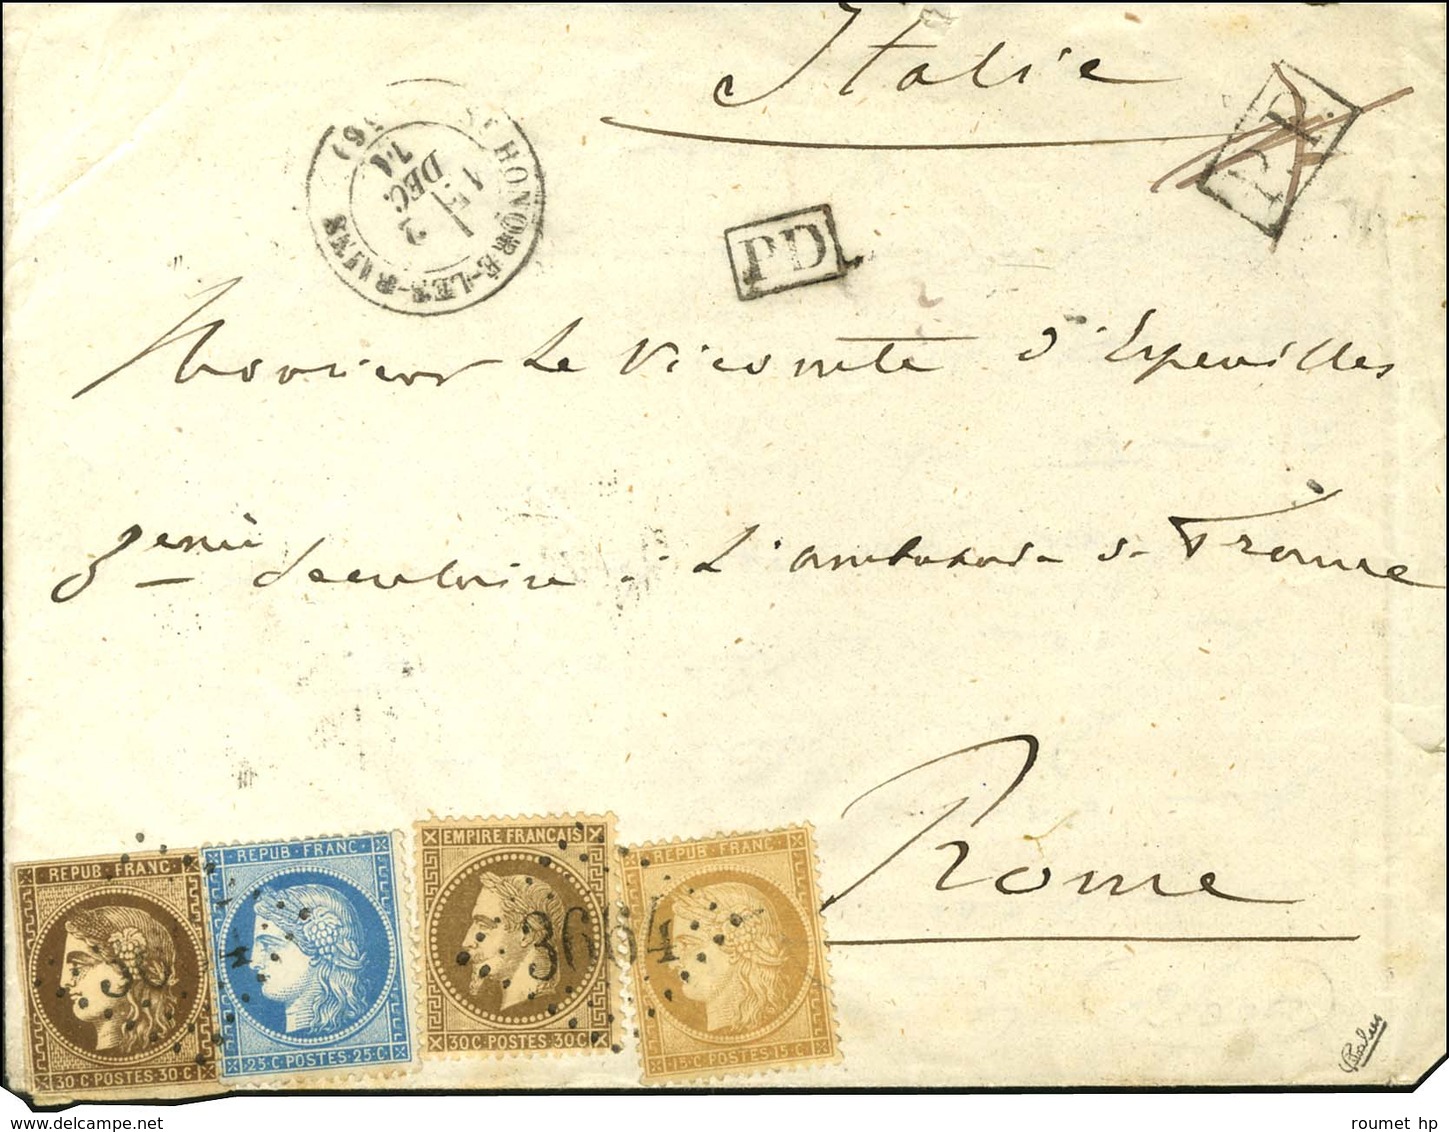 Italie
P.P.
ST HONORÉ-LES-BAINS
1E
2
DEC.
71
PD
Monsieur Le Vicomte d'Espeuilles
3eme Secretaire a L'ambassade de France
Rome
REPUB. FRANC.
30 C. POSTES 30 C.
REPUB. FRANC.
25 C. POSTES 25 C.
EMPIRE FRANÇAIS
30 C. POSTES 30 C.
REPUB. FRANC.
15 C. POSTES 15 C.
3664
roumet hp